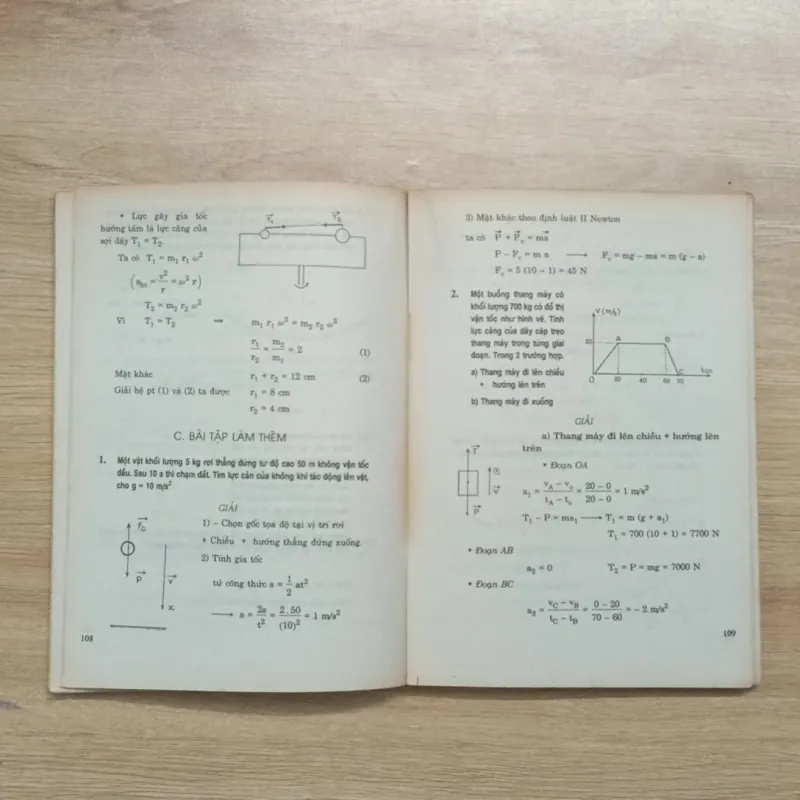 • Lực gây gia tốc
hướng tâm là lực căng của
sợi dây T₁ = T₂.
Ta có T₁ = m₁ r₁ ω²
(aht = v²/r = ω² r)
T₂ = m₂ r₂ ω²
Vì T₁ = T₂ ⇒ m₁ r₁ ω² = m₂ r₂ ω²
r₁/r₂ = m₂/m₁ = 2 (1)
Mặt khác r₁ + r₂ = 12 cm (2)
Giải hệ pt (1) và (2) ta được r₁ = 8 cm
r₂ = 4 cm
C. BÀI TẬP LÀM THÊM
1. Một vật khối lượng 5 kg rơi thẳng đứng từ độ cao 50 m không vận tốc
đầu. Sau 10 s thì chạm đất. Tìm lực cản của không khí tác động lên vật,
cho g = 10 m/s²
GIẢI
1) – Chọn gốc tọa độ tại vị trí rơi
+ Chiều + hướng thẳng đứng xuống.
2) Tính gia tốc
từ công thức s = 1/2 at²
⟶ a = 2s/t² = 2.50/(10)² = 1 m/s²
F꜀
P
v
x
108
3) Mặt khác theo định luật II Newton
ta có P + F꜀ = ma
P – F꜀ = m a ⟶ F꜀ = mg – ma = m (g – a)
F꜀ = 5 (10 – 1) = 45 N
2. Một buồng thang máy có
khối lượng 700 kg có đồ thị
vận tốc như hình vẽ. Tính
lực căng của dây cáp treo
thang máy trong từng giai
đoạn. Trong 2 trường hợp.
a) Thang máy đi lên chiều
+ hướng lên trên
b) Thang máy đi xuống
V (m/s)
20
A
B
C
O
20
40
60
70
t(s)
GIẢI
a) Thang máy đi lên chiều + hướng lên
trên
• Đoạn OA
a₁ = (v_A – v_o)/(t_A – t_o) = (20 – 0)/(20 – 0) = 1 m/s²
T₁ – P = ma₁ ⟶ T₁ = m (g + a₁)
T₁ = 700 (10 + 1) = 7700 N
• Đoạn AB
a₂ = 0 T₂ = P = mg = 7000 N
• Đoạn BC
a₃ = (v_C – v_B)/(t_C – t_B) = (0 – 20)/(70 – 60) = – 2 m/s²
T
v
P
109